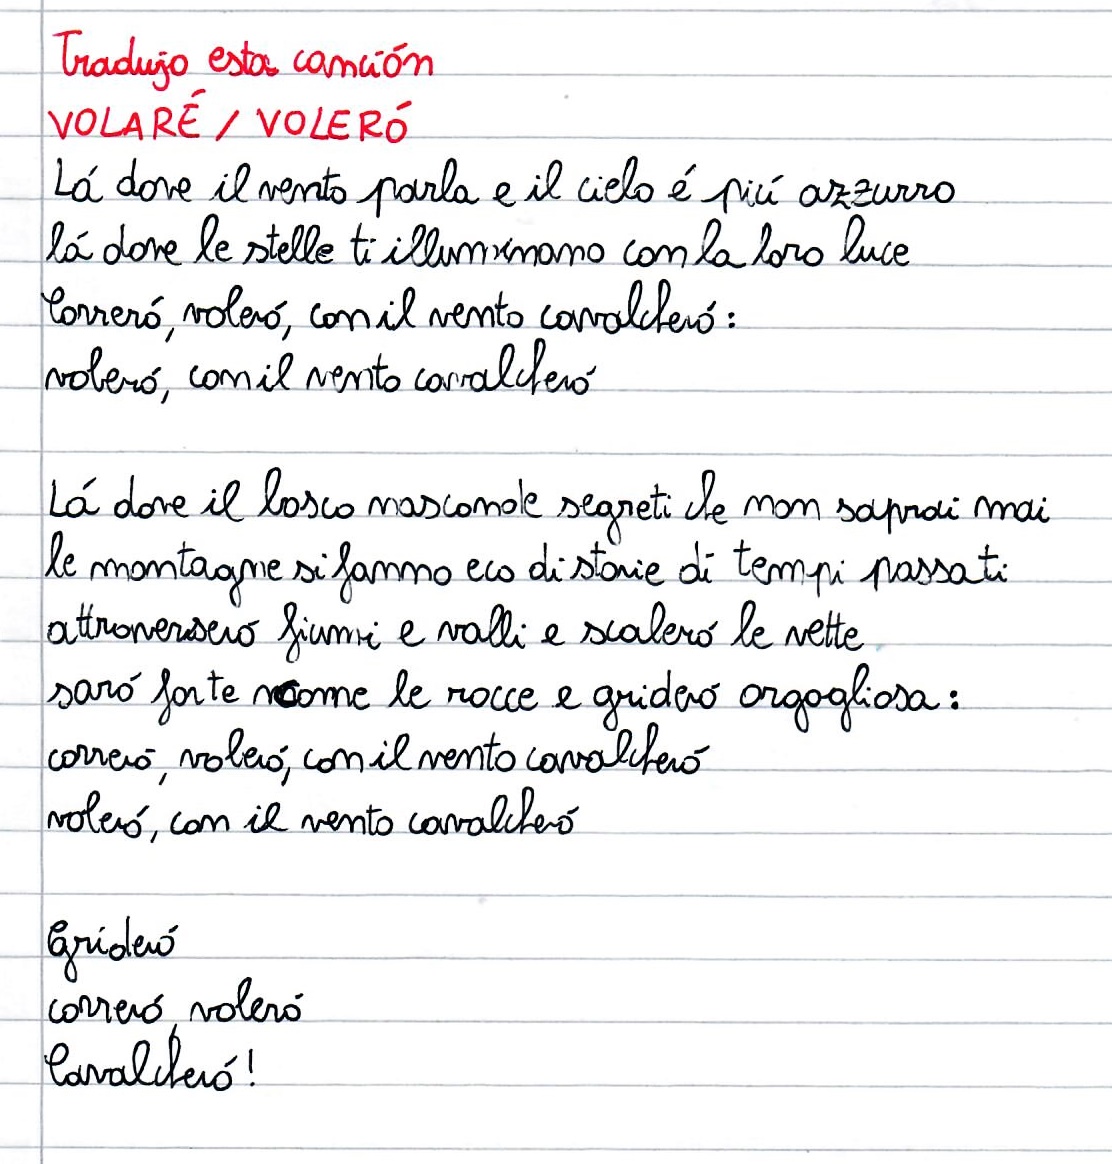 Tradujo esta canción
VOLARÉ / VOLERÓ
Lá dove il vento parla e il cielo é piú azzurro
lá dove le stelle ti illuminano con la loro luce
Correró, voleró, con il vento cavalcheró:
voleró, con il vento cavalcheró
Lá dove il bosco nasconde segreti che non saprai mai
le montagne si fanno eco di storie di tempi passati
attraverseró fiumi e valli e scaleró le vette
saró forte come le rocce e grideró orgogliosa:
correró, voleró, con il vento cavalcheró
voleró, con il vento cavalcheró
Grideró
correró, voleró
Cavalcheró!